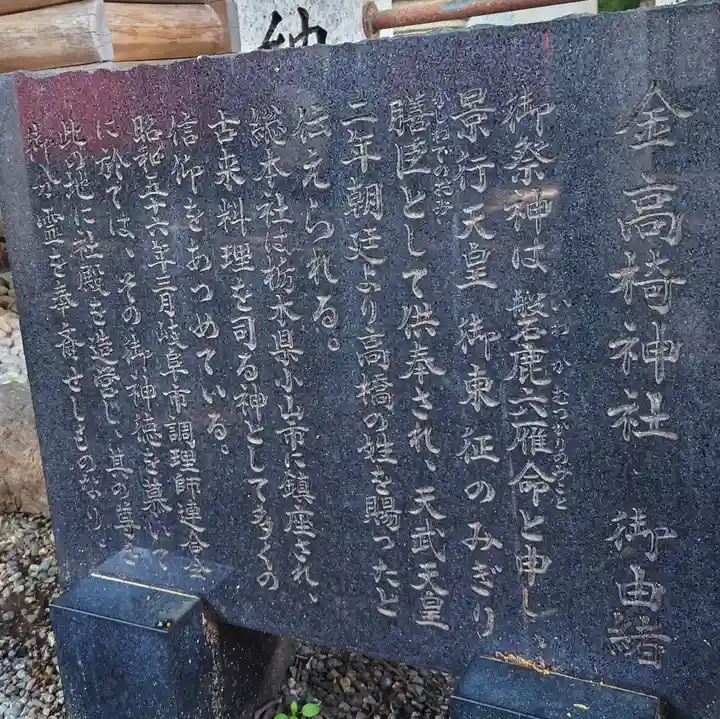 金高椅神社 御由緒
御祭神は磐鹿六雁命と申し、
いわかむつかりのみこと
景行天皇 御東征のみぎり
膳臣として供奉され、天武天皇
かしわでのおみ
二年朝廷より高橋の姓を賜ったと
伝えられる。
総本社は栃木県小山市に鎮座され、
古来料理を司る神として多くの
信仰をあつめている。
昭和五十六年三月岐阜市調理師連合会
に於ては、その御神徳を慕いて
此の地に社殿を造営し、其の尊き
御分霊を奉斎せしものなり。
納